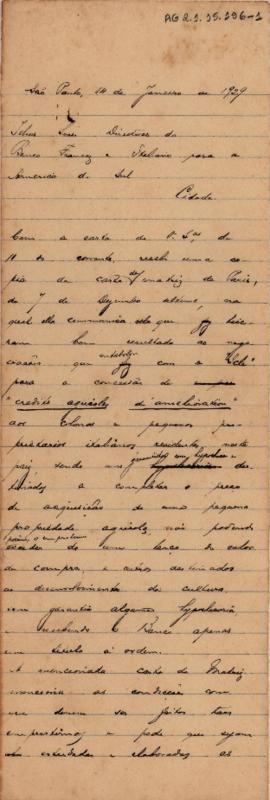 AG 2.1.15.196-1
São Paulo, 14 de Janeiro de 1929
Directores do
Banco Francez e Italiano para a
America do Sul
Cidade.
Com a carta de V. Sas. de
11 do corrente, recebi uma co-
pia da carta da matriz de Paris,
de 7 de Dezembro ultimo, na
qual ella communica que
bom resultado as nego-
ciações que com a
para a concessão de
"credito agricola d'amélioration"
aos colonos e pequenos pro-
prietarios italianos residentes neste
paiz, sendo uns des-
tinados a completar o preço
de acquisição de uma pequena
propriedade agricola, não podendo
porém, o emprestimo
exceder de um terço do valor
da compra, e outros destinados
ao desenvolvimento da cultura,
sem garantia alguma hypothecaria
e recebendo o Banco apenas
um titulo á ordem.
A mencionada carta da Matriz
as condições com
que devem ser feitos taes
emprestimos e pede que sejam
estudadas e elaboradas as